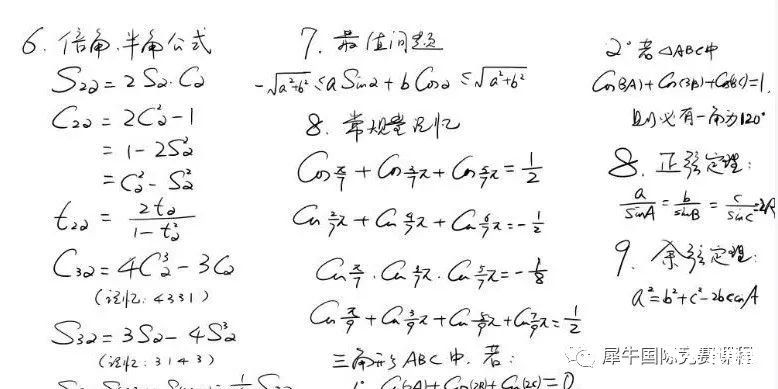 6. 倍角.半角公式
S2α = 2Sα·Cα
C2α = 2Cα² - 1
= 1 - 2Sα²
= Cα² - Sα²
t2α = 2tα / 1 - tα²
C3α = 4Cα³ - 3Cα
(记忆: 4331)
S3α = 3Sα - 4Sα³
(记忆: 3143)
7. 最值问题
-√a²+b² ≤ a Sinα + b Cosα ≤ √a²+b²
8. 常规量记忆
Cos π/7 + Cos 3/7 π + Cos 5/7 π = 1/2
Cos 2/7 π + Cos 4/7 π + Cos 6/7 π = -1/2
Cos π/7 · Cos 3/7 π · Cos 5/7 π = -1/8
Cos π/9 + Cos 3/9 π + Cos 5/9 π + Cos 7/9 π = 1/2
三角形ABC中, 若:
1° Cos(2A) + Cos(2B) + Cos(2C) = 0
2° 若△ABC中
Cos(3A) + Cos(3B) + Cos(3C) = 1,
则必有一角为120°
8. 正弦定理:
a/sinA = b/sinB = c/sinC = 2R
9. 余弦定理:
a² = b² + c² - 2bccosA
犀牛国际竞赛课程